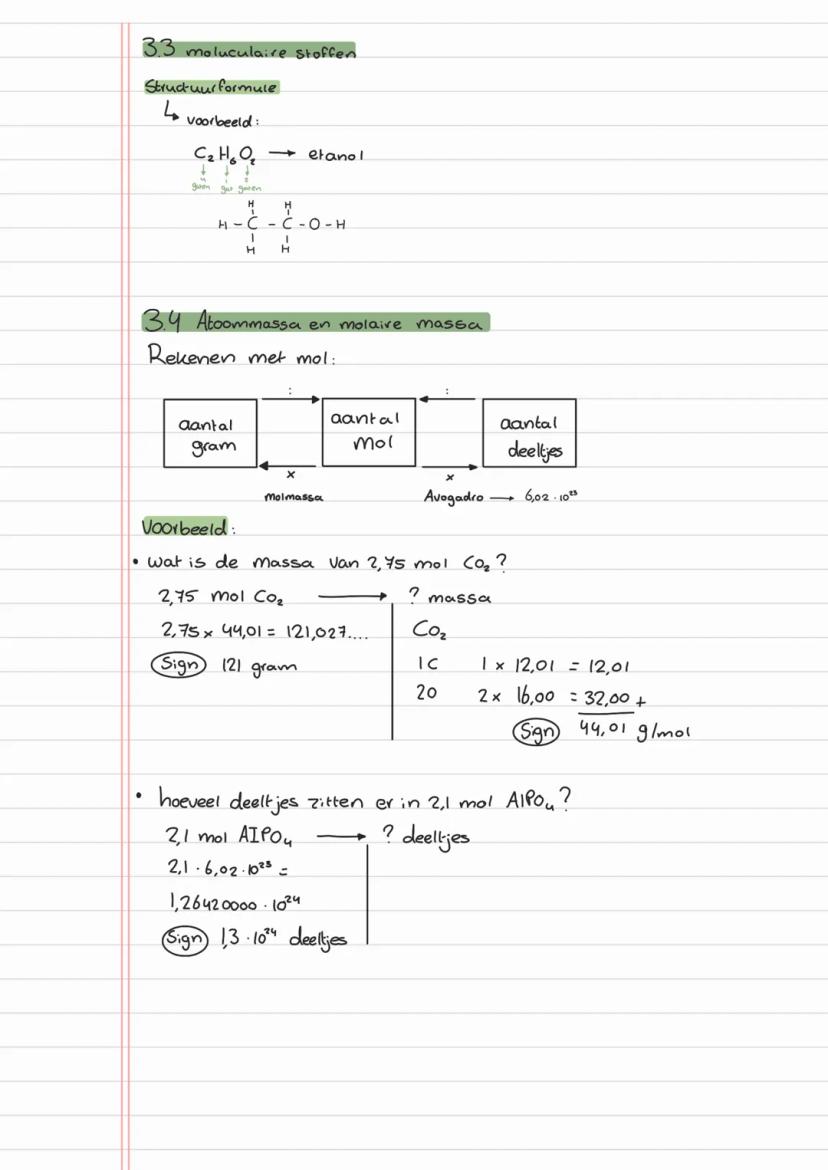 3.3 moluculaire stoffen
Structuurformule
↳ voorbeeld:
C₂H₆O₂ → etanol
↓ ↓ ↓
4 1 2
gaten gat gaten
H H
H - C - C - O - H
H H
3.4 Atoommassa en molaire massa
Rekenen met mol:
: :
aantal gram aantal mol aantal deeltjes
x x
molmassa Avogadro → 6,02 · 10²³
Voorbeeld:
• wat is de massa van 2,75 mol CO₂?
2,75 mol CO₂ → ? massa
2,75 x 44,01 = 121,027.... CO₂
Sign 121 gram 1C 1 x 12,01 = 12,01
2O 2 x 16,00 = 32,00 +
Sign 44,01 g/mol
• hoeveel deeltjes zitten er in 2,1 mol AlPO₄?
2,1 mol AlPO₄ → ? deeltjes
2,1 · 6,02 · 10²³ =
1,26420000 · 10²⁴
Sign 1,3 · 10²⁴ deeltjes